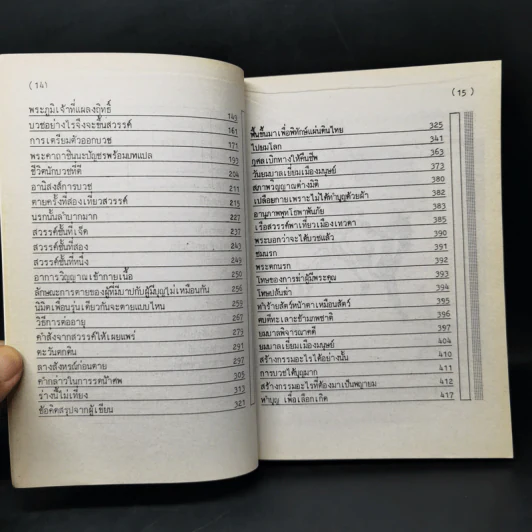 (14)
พระภูมิเจ้าที่แผลงฤทธิ์ 145
บวชอย่างไรจึงจะขึ้นสวรรค์ 161
การเตรียมตัวออกบวช 171
พระคาถาชินะบัญชรพร้อมบทแปล 193
ชีวิตนักบวชที่ดี 204
อานิสงส์การบวช 211
ตายครั้งที่สองเที่ยวสวรรค์ 215
นรกนั้นลำบากมาก 227
สวรรค์ชั้นที่เจ็ด 237
สวรรค์ชั้นที่สอง 243
สวรรค์ชั้นที่หนึ่ง 249
อาการวิญญาณเข้ากายเนื้อ 250
ลักษณะการตายของผู้ที่มีบาปกับผู้มีบุญไม่เหมือนกัน 256
นิมิตเพื่อนรุ่นเดียวกันจะตายแบบไหน
วิธีการต่ออายุ
คำสั่งจากสวรรค์ให้เผยแพร่ 279
ตะวันตกดิน 291
ลางสังหรณ์ก่อนตาย 297
คำกล่าวในการรดน้ำศพ 305
ร่างนี้ไม่เที่ยง 313
ข้อคิดสรุปจากผู้เขียน 321
(15)
ฟื้นขึ้นมาเพื่อพิทักษ์แผ่นดินไทย 325
ไปยมโลก 341
กุศลเบิกทางให้คืนชีพ 363
วันยมบาลเยี่ยมเมืองมนุษย์ 373
สภาพวิญญาณต่างมิติ 380
เปลือยกายเพราะไม่ได้ทำบุญด้วยผ้า 382
อานุภาพพุทโธพาพ้นภัย 383
เรือสวรรค์พาเที่ยวเมืองเทวดา 385
พระบอกว่าจะได้บวชแล้ว 390
ชมนรก 391
พระตกนรก 392
โทษของการฆ่าผู้มีพระคุณ 393
โทษปล้นฆ่า 394
ทำร้ายสัตว์หน้าตาเหมือนสัตว์ 395
คบดีทะเลาะข้ามภพชาติ 396
ยมบาลพิจารณาคดี 397
ยมบาลเยี่ยมเมืองมนุษย์ 404
สร้างกรรมอะไรได้อย่างนั้น 410
การบวชได้บุญมาก 411
สร้างกรรมอะไรที่ต้องมาเป็นพญายม 412
ทำบุญ เพื่อเลือกเกิด 417